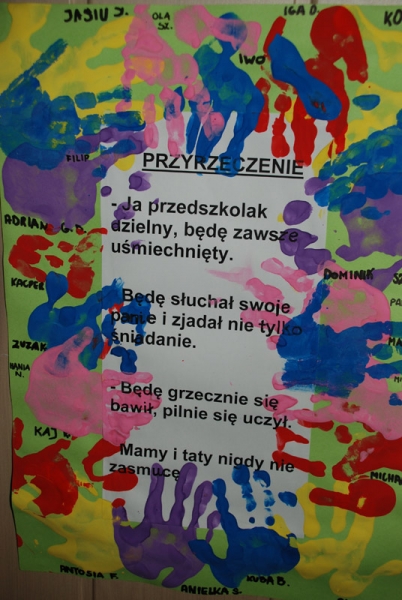 JASIU J.
OLA SZ.
IGA D.
KO
IWO
FILIP
PRZYRZECZENIE
- Ja przedszkolak
dzielny, będę zawsze
uśmiechnięty.
ADRIAN G.
DOMINIK
KACPER
- Będę słuchał swoje
panie i zjadał nie tylko
śniadanie.
ZUZAK
HANIA N.
- Będę grzecznie się
bawił, pilnie się uczył.
KAJ
- Mamy i taty nigdy nie
zasmucę
MICHA
ANTOSIA F.
ANIELKA S.
KUBA B.